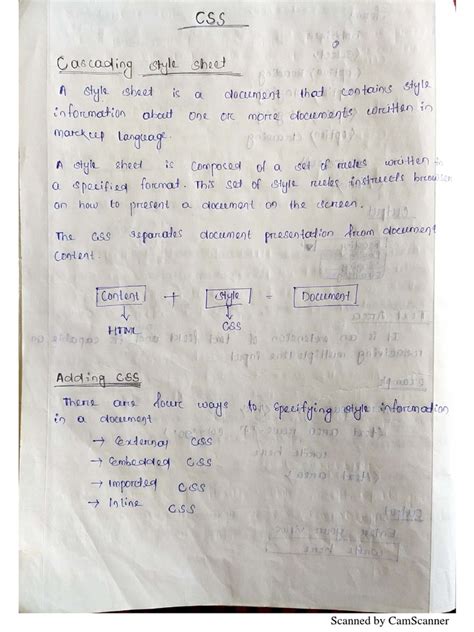 CSS
Cascading style sheet
A style sheet is a document that contains style
information about one or more documents written in
markup language.
A style sheet is composed of a set of rules written in
a specified format. This set of style rules instructs browser
on how to present a document on the screen.
The CSS separates document presentation from document
content.
Content + style = Document
HTML CSS
Adding CSS
There are four ways to specifying style information
in a document
→ External CSS
→ Embedded CSS
→ Imported CSS
→ Inline CSS
Scanned by CamScanner